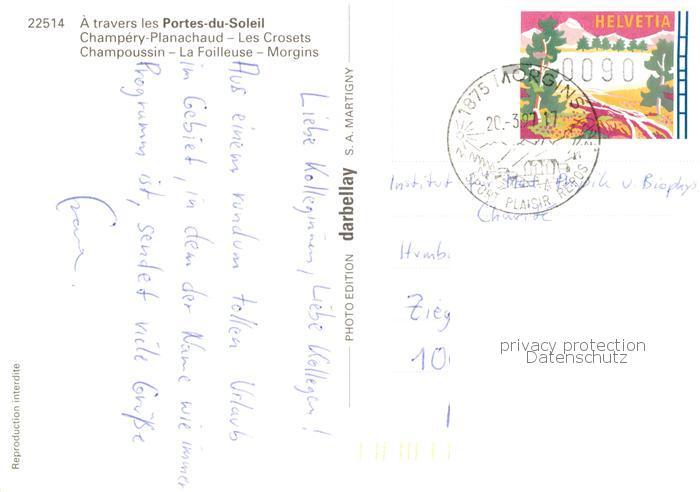 22514 À travers les Portes-du-Soleil
Champéry-Planachaud – Les Crosets
Champoussin – La Foilleuse – Morgins
Liebe Kolleginnen, Liebe Kollegen!
Aus einem rundum tollen Urlaub
im Gebiet, in dem der Name wie immer
Programm ist, sendet viele Grüße
Reproduction interdite
PHOTO EDITION darbellay S.A. MARTIGNY
HELVETIA
0090
1875 MORGINS
20.-3.
SPORT PLAISIR REPOS
Institut Med. Physik u. Biophys
Charité
Humb
Zieg
10
privacy protection
Datenschutz